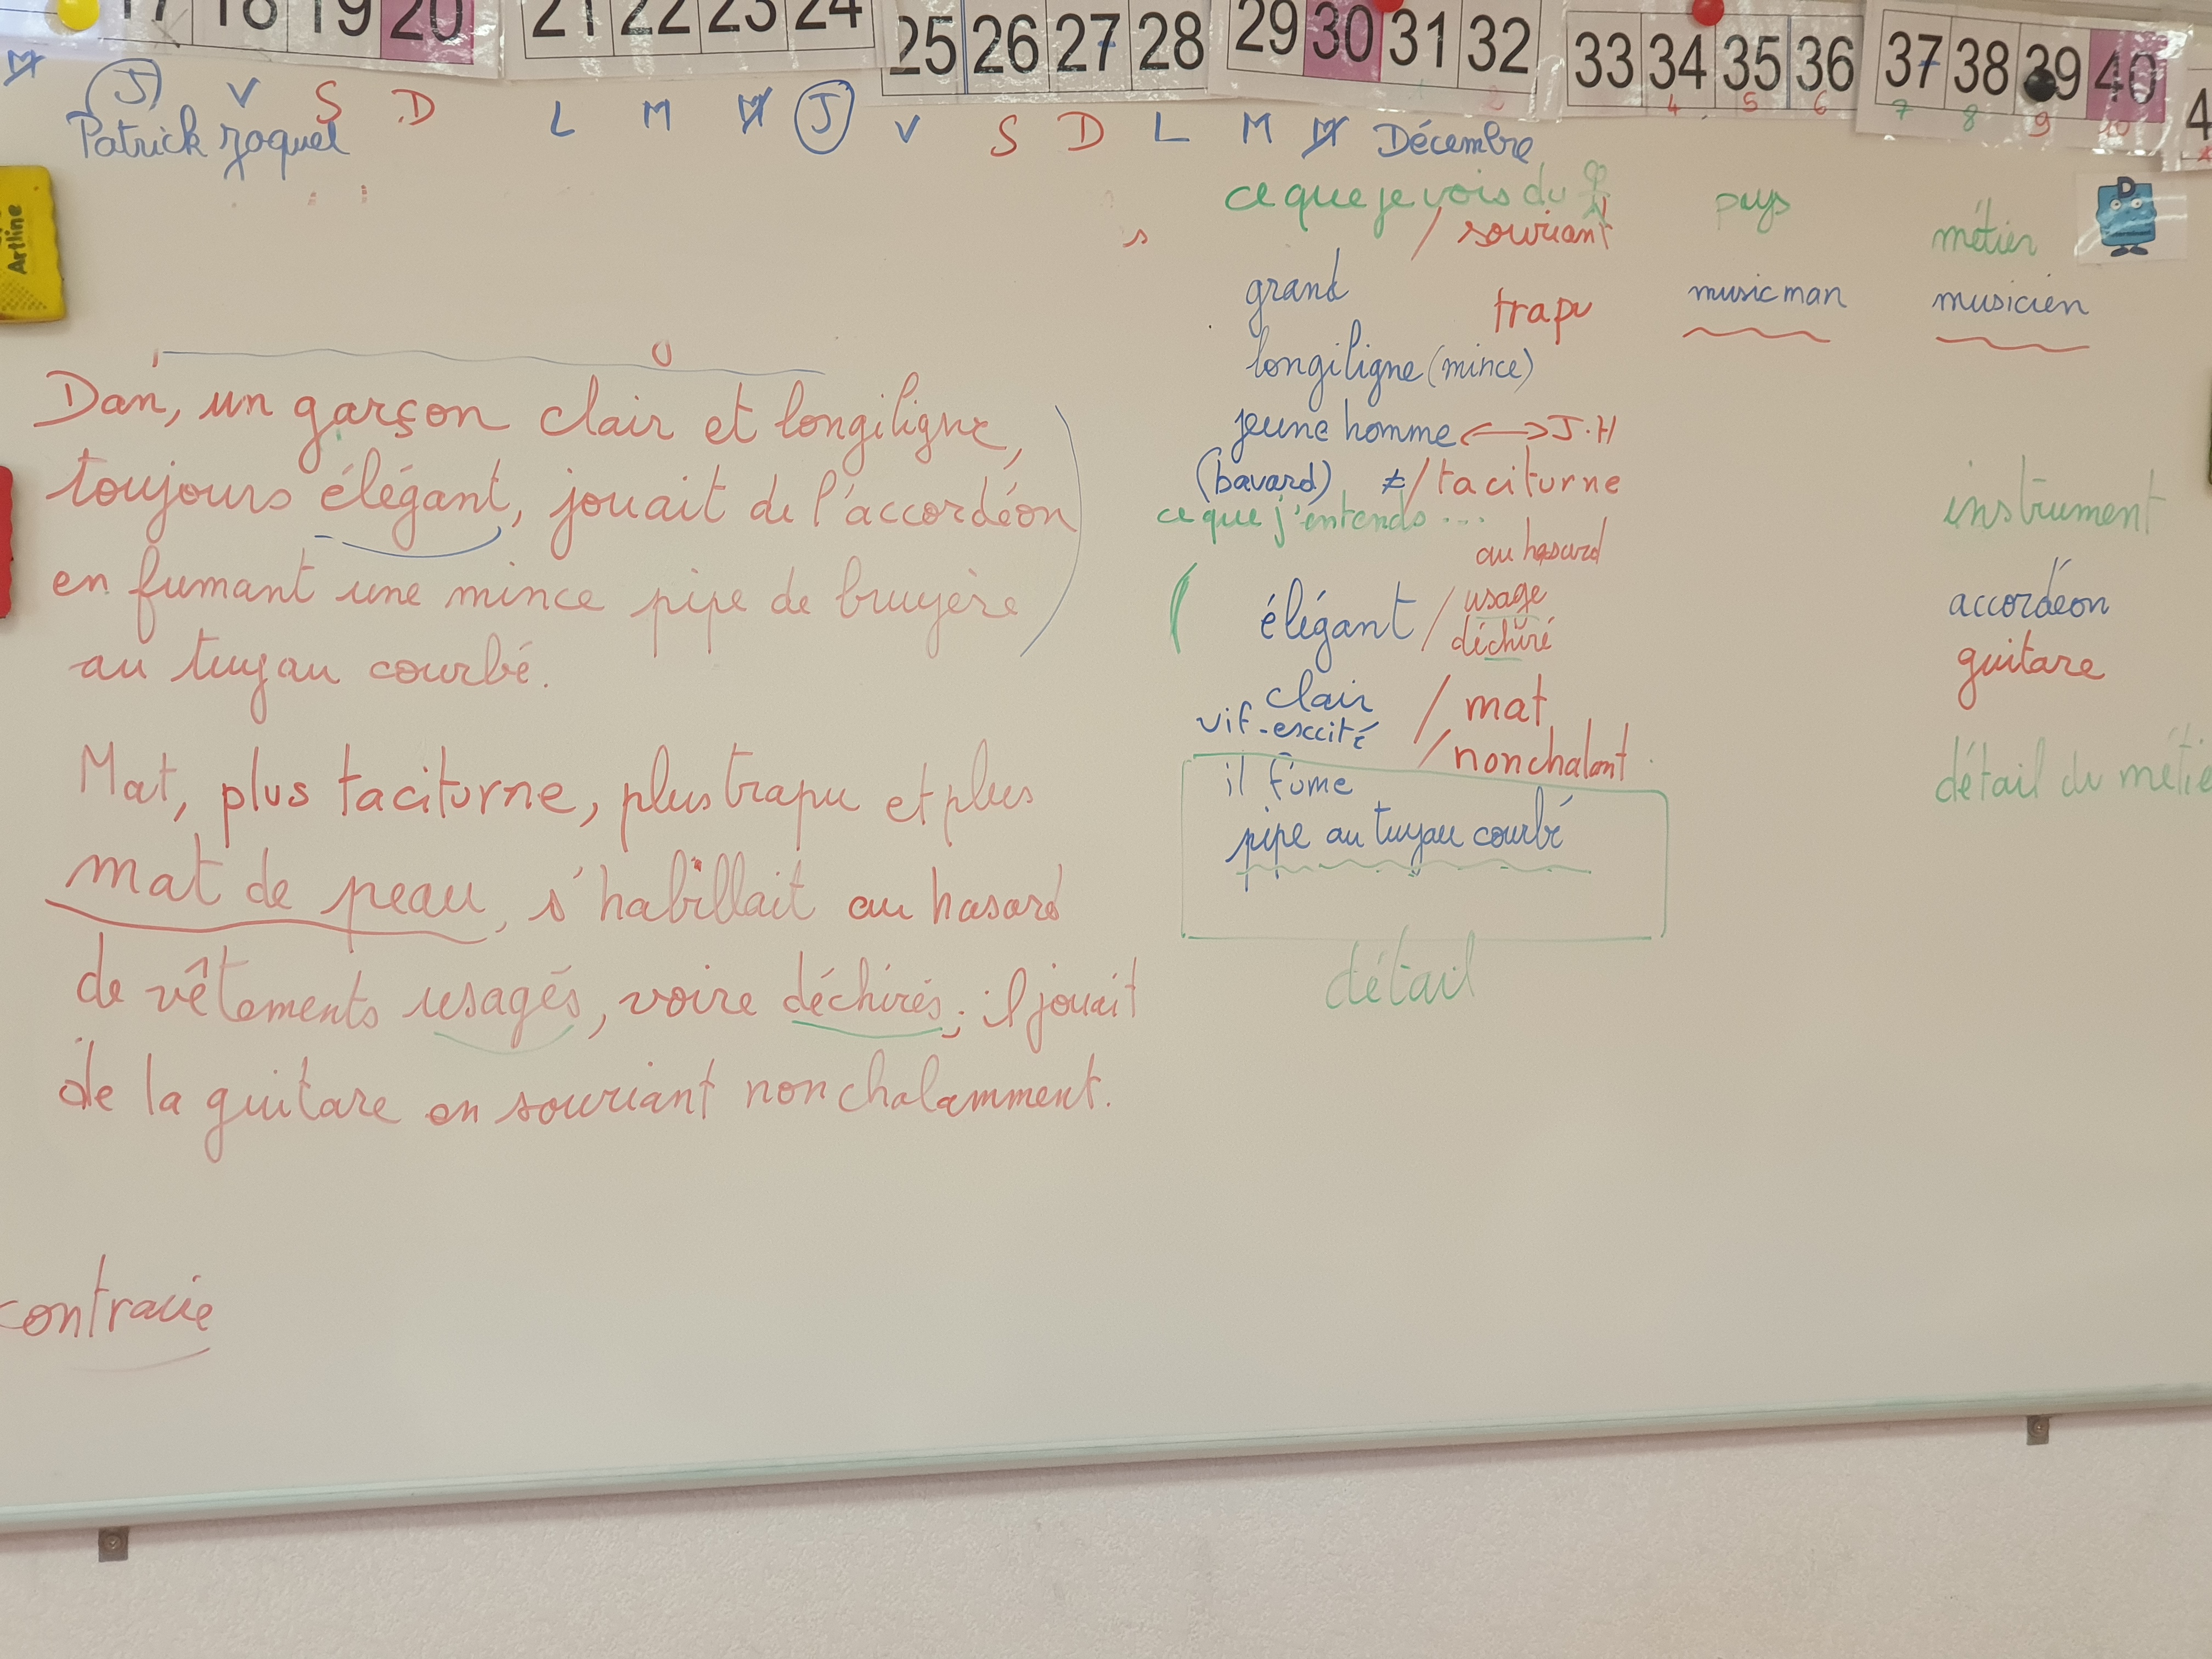 17 18 19 20 21 22 23 24 25 26 27 28 29 30 31 32 33 34 35 36 37 38 39 40 4
M J V S D L M M J V S D L M M Décembre
4 5 6 7 8 9 10
Patrick Joquel
Artline
s
Dan, un garçon clair et longiligne,
toujours élégant, jouait de l'accordéon
en fumant une mince pipe de bruyère
au tuyau courbé.
Mat, plus taciturne, plus trapu et plus
mat de peau, s'habillait au hasard
de vêtements usagés, voire déchirés; il jouait
de la guitare en souriant nonchalamment.
contraire
ce que je vois du
/ souriant
grand trapu
longiligne (mince)
jeune homme ↔ J.H
(bavard) ≠/ taciturne
ce que j'entends ...
au hasard
élégant / usagé
déchiré
clair / mat
vif-excité / nonchalant
il fume
pipe au tuyau courbé
détail
pays
musicman
D
métier
musicien
instrument
accordéon
guitare
détail du métie